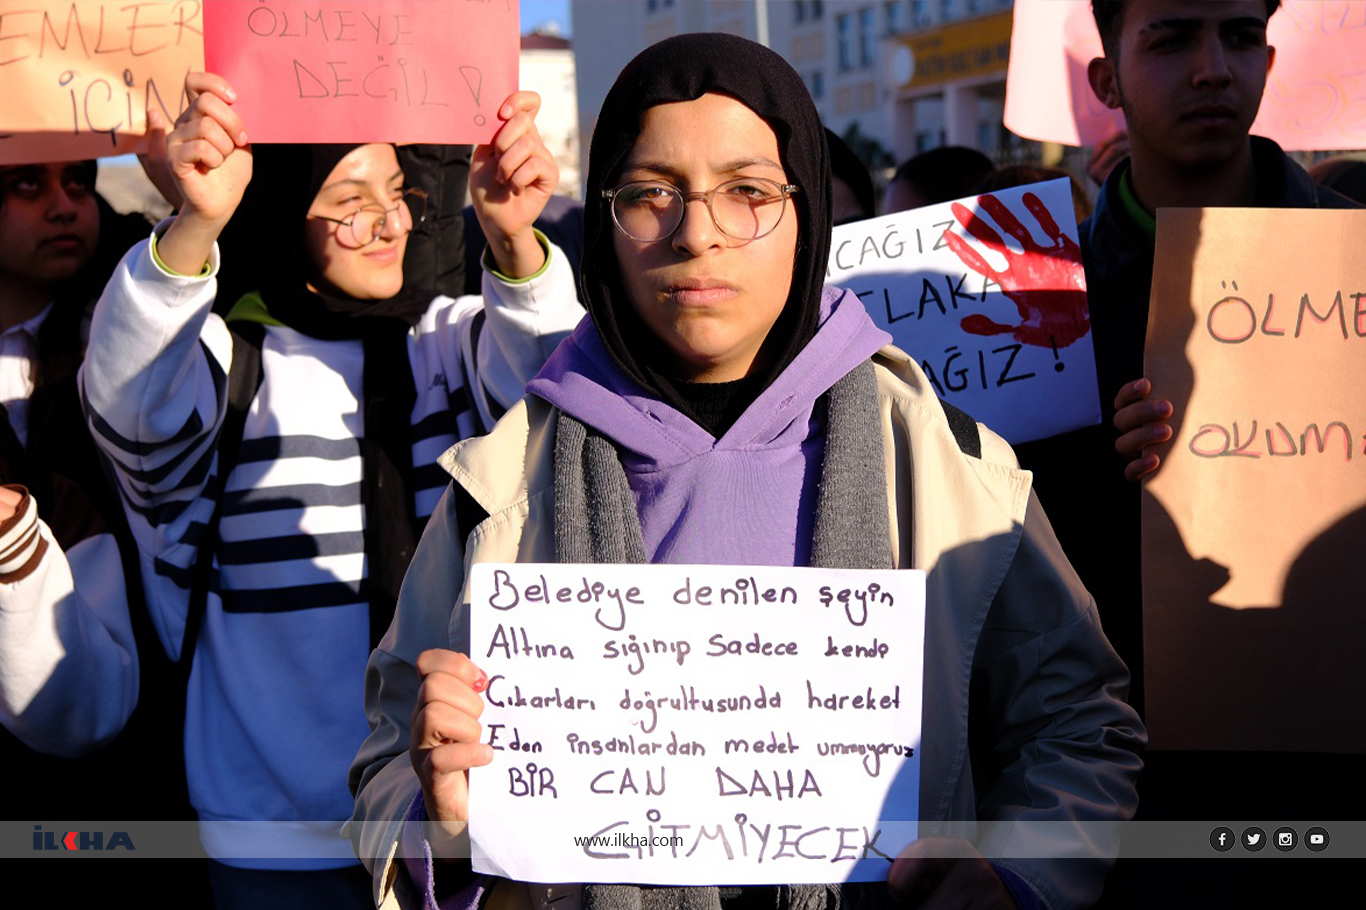 EMLER
İÇİN
ÖLMEYE
DEĞİL!
CAĞIZ
TLAKA
AĞIZ!
ÖLME
OKUM
Belediye denilen şeyin
Altına sığınıp Sadece kendi
Çıkarları doğrultusunda hareket
Eden insanlardan medet ummuyoruz
BİR CAN DAHA
GİTMİYECEK
İLKHA
www.ilkha.com